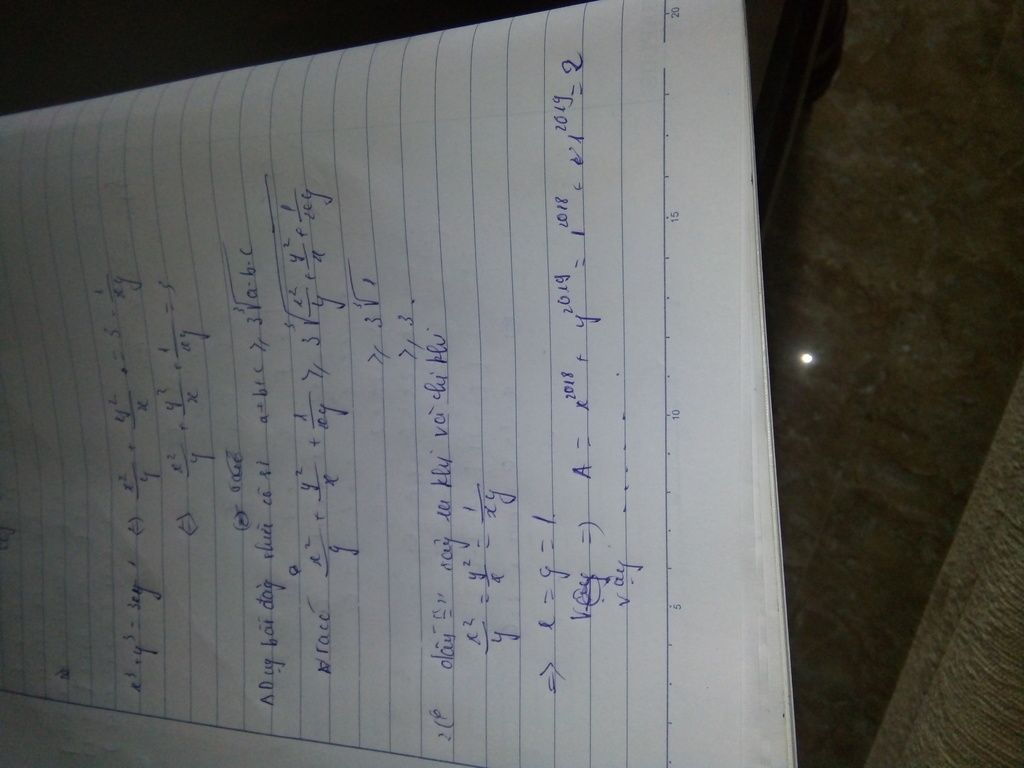 x³ + y³ = 3xy - 1 (=) x²/y + y²/x = 3 - 1/xy
(=) x²/y + y²/x + 1/xy = 3
AD ug bất đẳg thức cô si a+b+c ≥ 3∛a·b·c
Ta có x²/y + y²/x + 1/xy ≥ 3 ∛x²/y + y²/x + 1/xy
≥ 3 ∛1
≥ 3.
dấu "=" xảy ra khi và chỉ khi
x²/y = y²/x = 1/xy
=> x = y = 1
=) A = x²⁰¹⁸ + y²⁰¹⁹ = 1²⁰¹⁸ + 1²⁰¹⁹ = 2
vậy .......
5 10 15 20